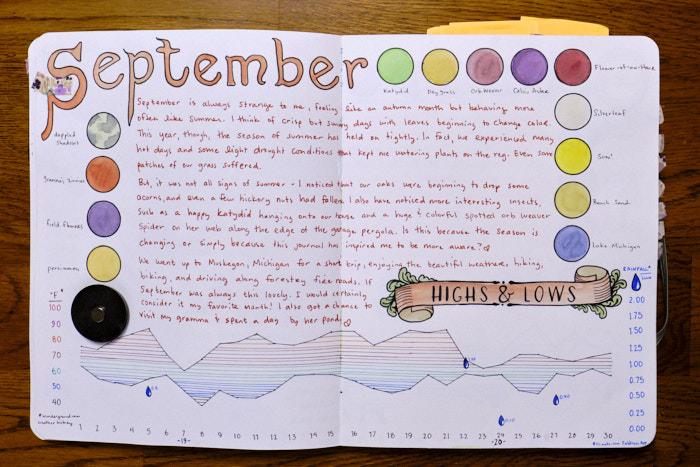 September
September is always strange to me, feeling like an autumn month but behaving more
often like summer. I think of crisp but sunny days with leaves beginning to change color.
This year, though, the season of summer has held on tightly. In fact, we experienced many
hot days and some slight drought conditions that kept me watering plants on the reg. Even some
patches of our grass suffered.
But, it was not all signs of summer - I noticed that our oaks were beginning to drop some
acorns, and even a few hickory nuts had fallen. I also have noticed more interesting insects,
such as a happy katydid hanging onto our house and a huge & colorful spotted orb weaver
spider on her web along the edge of the garage pergola. Is this because the season is
changing or simply because this journal has inspired me to be more aware?
We went up to Muskegon, Michigan for a short trip, enjoying the beautiful weather, hiking,
biking, and driving along forestey side roads. If
September was always this lovely, I would certainly
consider it my favorite month! I also got a chance to
visit my gramma & spent a day by her pond.
Katydid
Dry grass
Orb Weaver
Calico Aster
Flower-of-an-Hour
Silverleaf
Sun!
Beach Sand
Lake Michigan
dappled
shadows
gramma's zinnias
field flowers
persimmons
HIGHS & LOWS
°F*
100
90
80
70
60
50
40
RAINFALL*
2.00
1.75
1.50
1.25
1.00
0.75
0.50
0.25
0.00
*wunderground.com
weather history
1 2 3 4 5 6 7 8 9 10 11 12 13 14 15 16 17 18 19 20 21 22 23 24 25 26 27 28 29 30
-19-
-20-